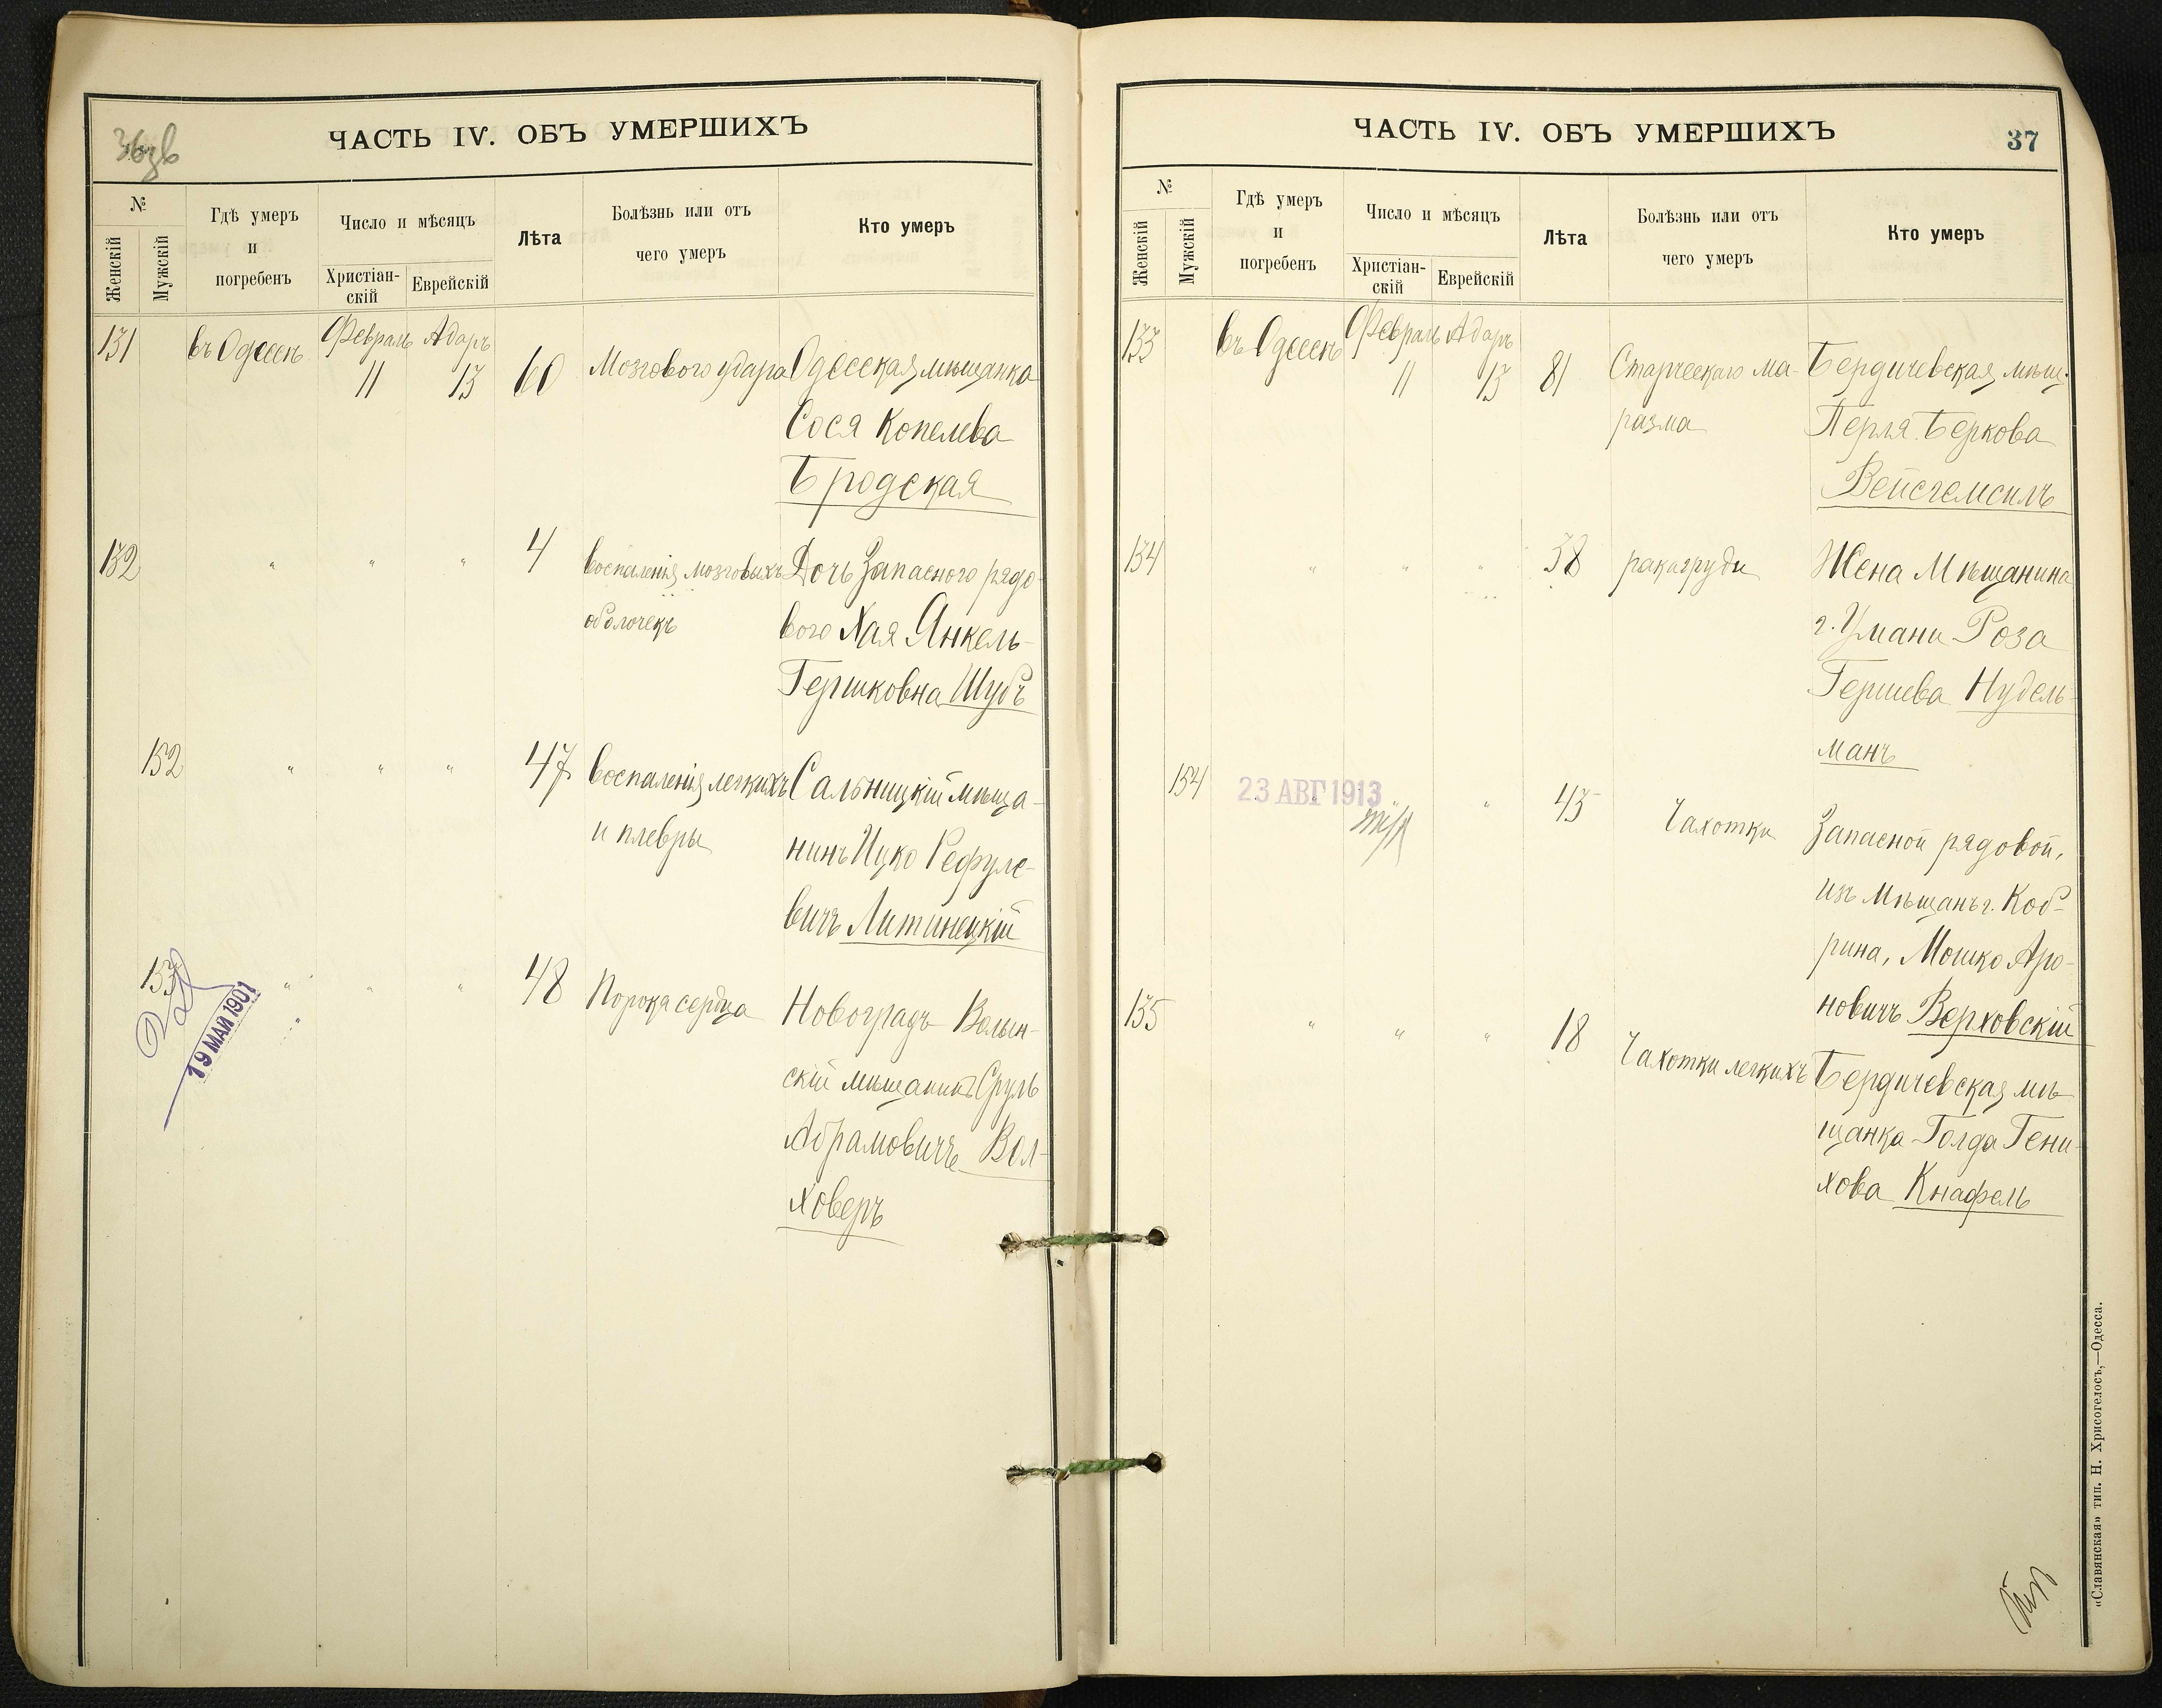 36зв
ЧАСТЬ IV. ОБЪ УМЕРШИХЪ
№
Женскій
Мужскій
Гдѣ умеръ
и
погребенъ
Число и мѣсяцъ
Христіан-
скій
Еврейскій
Лѣта
Болѣзнь или отъ
чего умеръ
Кто умеръ
131 въ Одессѣ Февраль Адаръ
11 13 60 Мозгового удара Одесская мѣщанка
Сося Копелева
Бродская
132 " " " 4 воспаленія мозговыхъ Дочь Запасного рядо-
оболочекъ вого Хая Янкель-
Гершковна Шубъ
152 " " " 47 воспаленія легкихъ Сальницкій мѣща-
и плевры нинъ Ицко Рефуле-
вичъ Литинецкій
153 " " " 48 Порока сердца Новоградъ Волын-
скій мѣщанинъ Сруль
Абрамовичъ Вол-
ховеръ
19 МАЙ 1901
ЧАСТЬ IV. ОБЪ УМЕРШИХЪ
37
№
Женскій
Мужскій
Гдѣ умеръ
и
погребенъ
Число и мѣсяцъ
Христіан-
скій
Еврейскій
Лѣта
Болѣзнь или отъ
чего умеръ
Кто умеръ
133 въ Одессѣ Февраль Адаръ
11 13 81 Старческаго ма- Бердичевская мѣщ.
разма Перля Беркова
134 " " " 38 рака груди Жена Мѣщанина
г. Умани Роза
Гершева Нудель-
манъ
154 23 АВГ 1913 " " 43 Чахотки Запасной рядовой,
изъ мѣщанъ г. Коб-
рина, Мошко Аро-
новичъ Верховскій
135 " " " 18 Чахотки легкихъ Бердичевская мѣ-
щанка Голда Гени-
хова Кнафель
«Славянская» тип. Н. Хрисогелосъ,—Одесса.